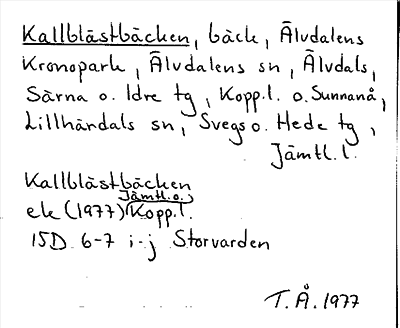 Kallblästbäcken, bäck, Älvdalens
Kronopark, Älvdalens sn, Älvdals,
Särna o. Idre tg, Kopp.l. o. Sunnanå,
Lillhärdals sn, Svegs o. Hede tg,
Jämtl. l.
Kallblästbäcken
Jämtl. o.
ek (1977) Kopp.l.
15D 6-7 i-j Storvarden
T.Å. 1977